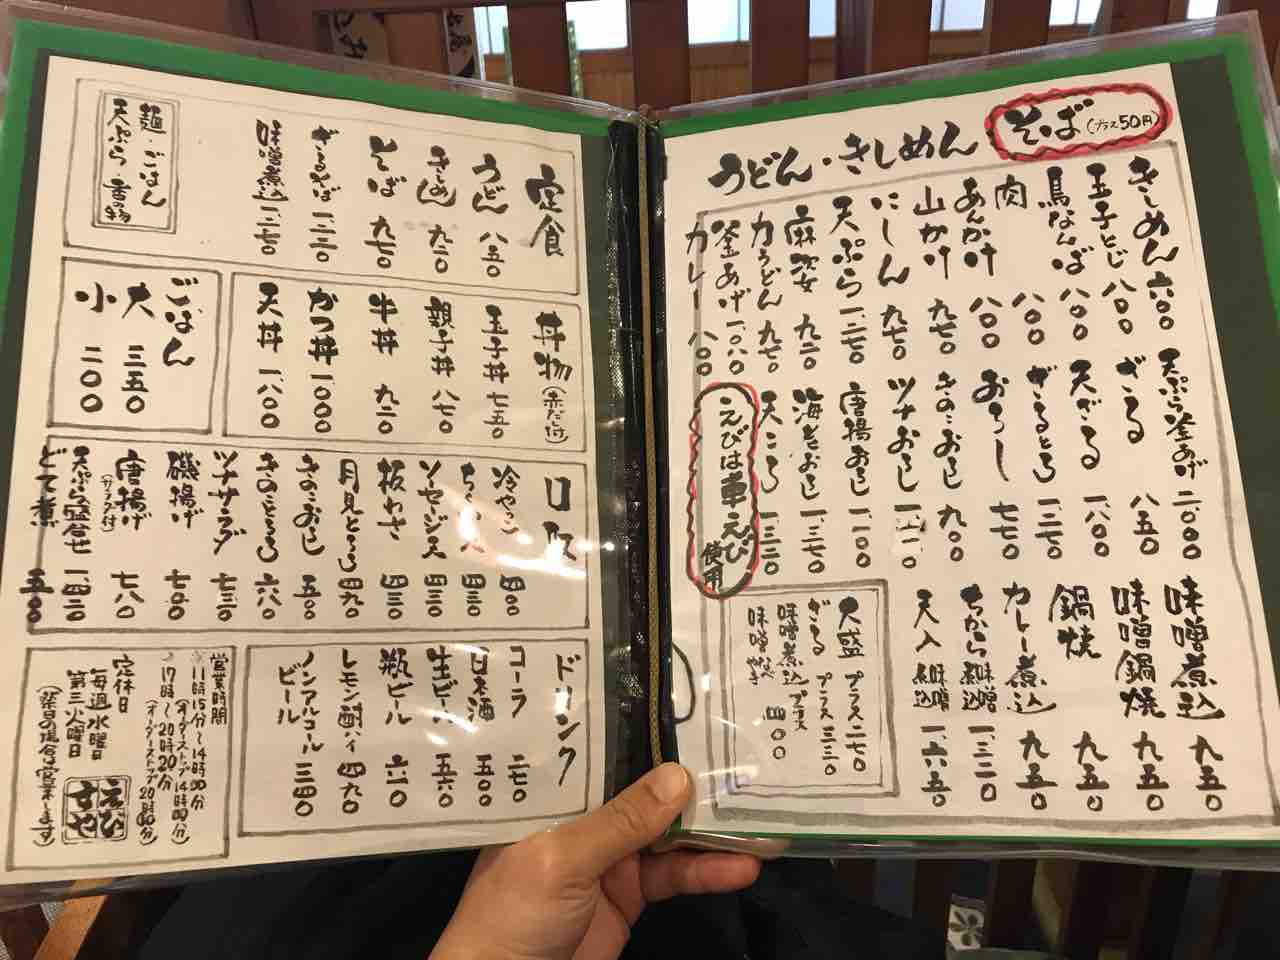 うどん・きしめん
そば(プラス50円)
きしめん 六〇〇
玉子とじ 八〇〇
鳥なんば 八〇〇
肉 八〇〇
あんかけ 八〇〇
山かけ 九七〇
にしん 九七〇
天ぷら 一、二七〇
麻婆 九二〇
力うどん 九七〇
釜あげ 一、〇八〇
カレー 八〇〇
天ぷら釜あげ 二、〇〇〇
ざる 八五〇
天ざる 一、八〇〇
ざるとろ 一、二七〇
おろし 七七〇
きのこおろし 九〇〇
ツナおろし 一、〇
唐揚おろし 一、一〇〇
海老おろし 一、三七〇
天ころ 一、三二〇
えびは車えび使用
味噌煮込 九五〇
味噌鍋焼 九五〇
鍋焼 九五〇
カレー煮込 九五〇
ちから味噌煮込 一、三二〇
天入味噌煮込 一、六五〇
大盛 プラス二七〇
ざる プラス三三〇
味噌煮込 プラス
味噌なべやき 四〇〇
定食
うどん 八五〇
きしめん 九二〇
そば 九七〇
ざるそば 一、二二〇
味噌煮込 一、二七〇
麺・ごはん
天ぷら・香の物
丼物(赤だし付)
玉子丼 七五〇
親子丼 八七〇
牛丼 九二〇
かつ丼 一、〇〇〇
天丼 一、八〇〇
ごはん
大 三五〇
小 二〇〇
一口
冷やっこ 四〇〇
四三〇
ソーセージ天 四三〇
板わさ 四三〇
月見とろろ 四九〇
きのこおろし 五〇〇
きのことろろ 六八〇
ツナサラダ 七三〇
磯揚げ 七〇〇
唐揚げ(サラダ付) 七八〇
天ぷら盛合せ 一、四二〇
どて煮 五〇〇
ドリンク
コーラ 二七〇
日本酒 五〇〇
生ビール 五六〇
瓶ビール 六六〇
レモン酎ハイ 四九〇
ノンアルコールビール 三四〇
営業時間
11時15分〜14時00分
(オーダーストップ14時00分)
17時〜20時20分
(オーダーストップ20時00分)
定休日
毎週水曜日
第三火曜日
(祭日の場合は営業します)
えびすや